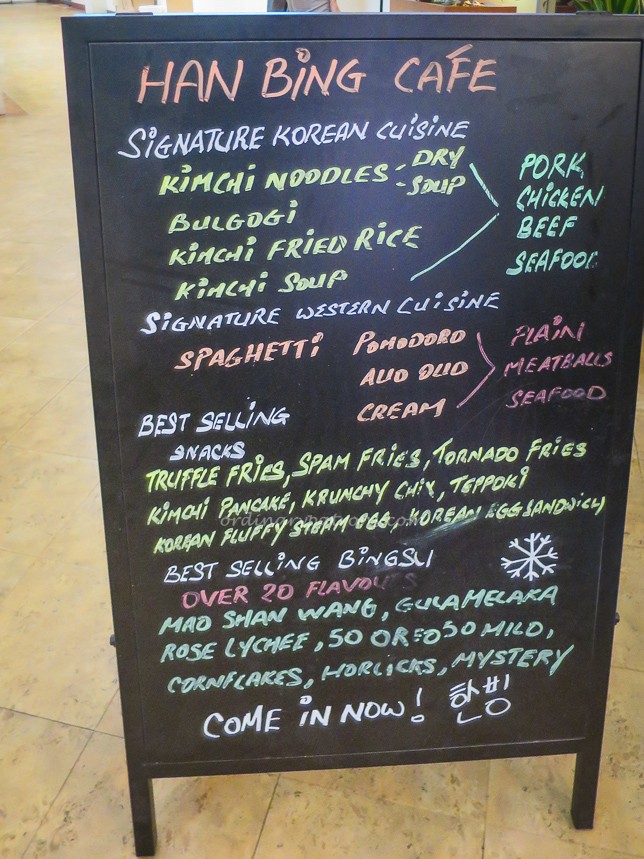 HAN BING CAFE
SIGNATURE KOREAN CUISINE
KIMCHI NOODLES - DRY
- SOUP
BULGOGI
KIMCHI FRIED RICE
KIMCHI SOUP
PORK
CHICKEN
BEEF
SEAFOOD
SIGNATURE WESTERN CUISINE
SPAGHETTI
POMODORO
ALIO OLIO
CREAM
PLAIN
MEATBALLS
SEAFOOD
BEST SELLING
SNACKS
TRUFFLE FRIES, SPAM FRIES, TORNADO FRIES
KIMCHI PANCAKE, KRUNCHY CHIX, TEPPOKI
KOREAN FLUFFY STEAM EGG, KOREAN EGG SANDWICH
BEST SELLING BINGSU
OVER 20 FLAVOURS
MAO SHAN WANG, GULA MELAKA
ROSE LYCHEE, SO OREO SO MILO,
CORNFLAKES, HORLICKS, MYSTERY
COME IN NOW! 한빙